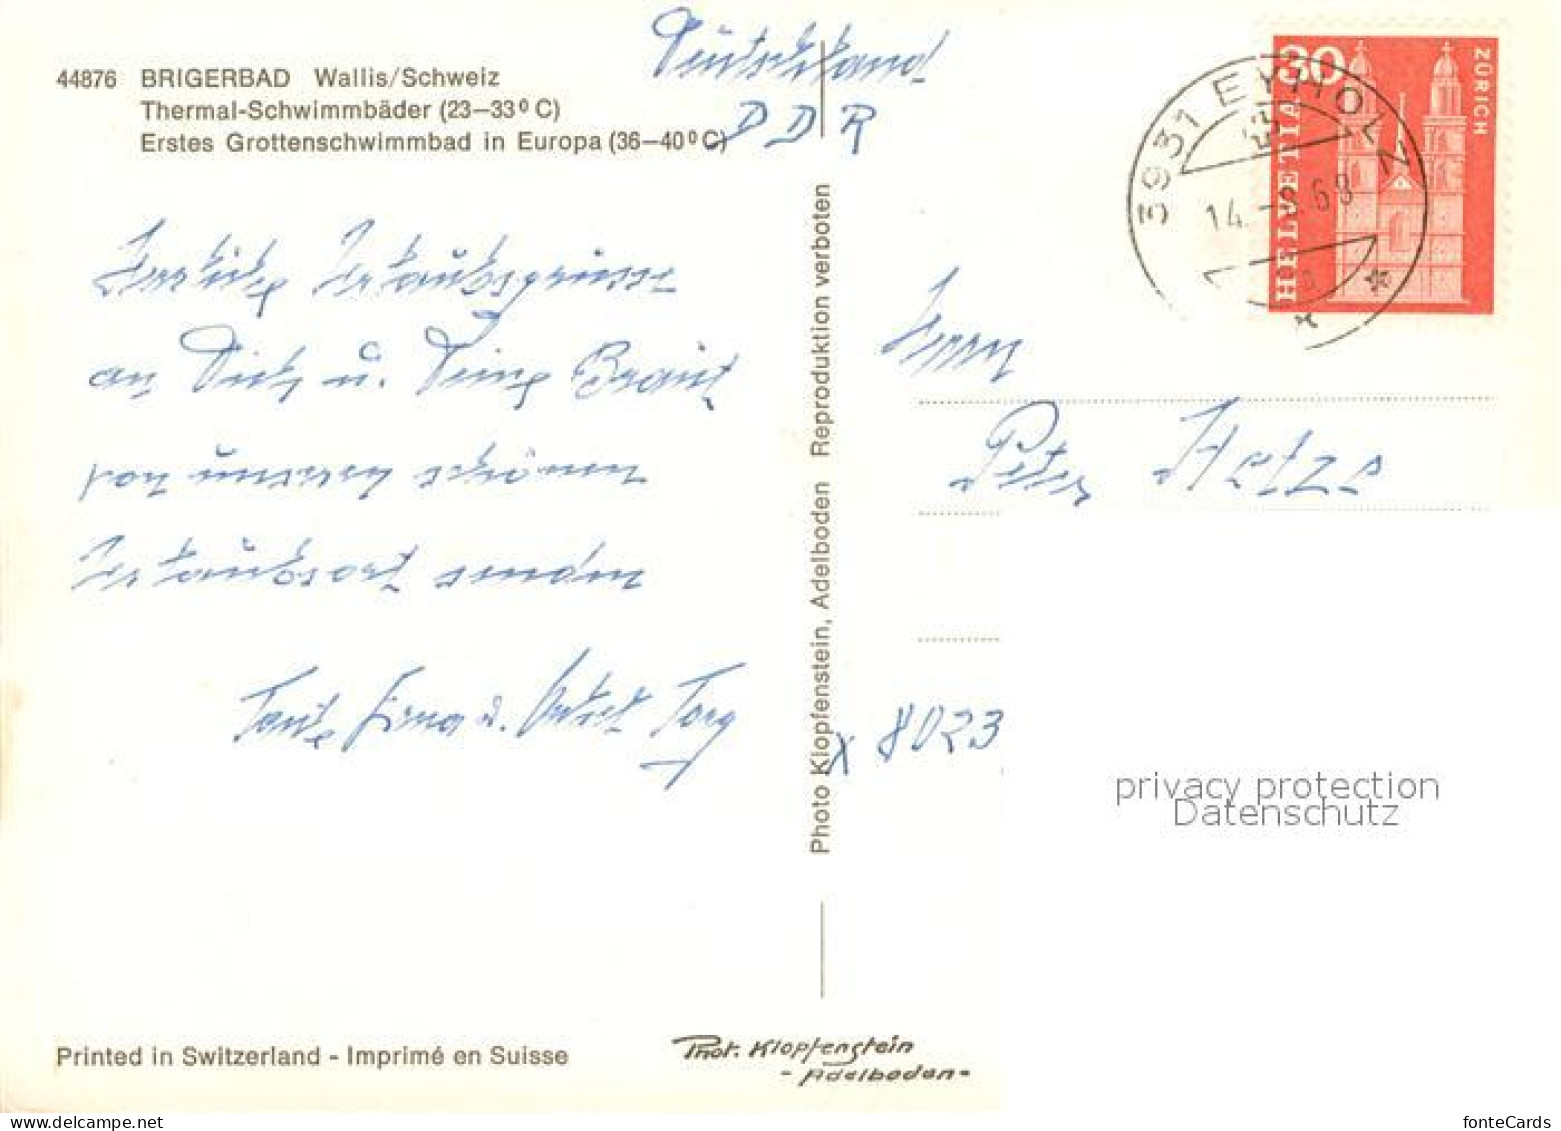 44876 BRIGERBAD Wallis/Schweiz
Thermal-Schwimmbäder (23–33º C)
Erstes Grottenschwimmbad in Europa (36–40º C)
Deutschland
DDR
30
HELVETIA
ZÜRICH
3931 EYHOLZ
14. 68
Herzliche Urlaubsgrüsse
an Dich u. Deine Braut
von unseren schönen
Urlaubsort senden
Tante Erna u. Onkel
Herrn
Peter
x 8023
Photo Klopfenstein, Adelboden Reproduktion verboten
privacy protection
Datenschutz
Printed in Switzerland - Imprimé en Suisse
Phot. Klopfenstein
- Adelboden -
www.delcampe.net
fonteCards